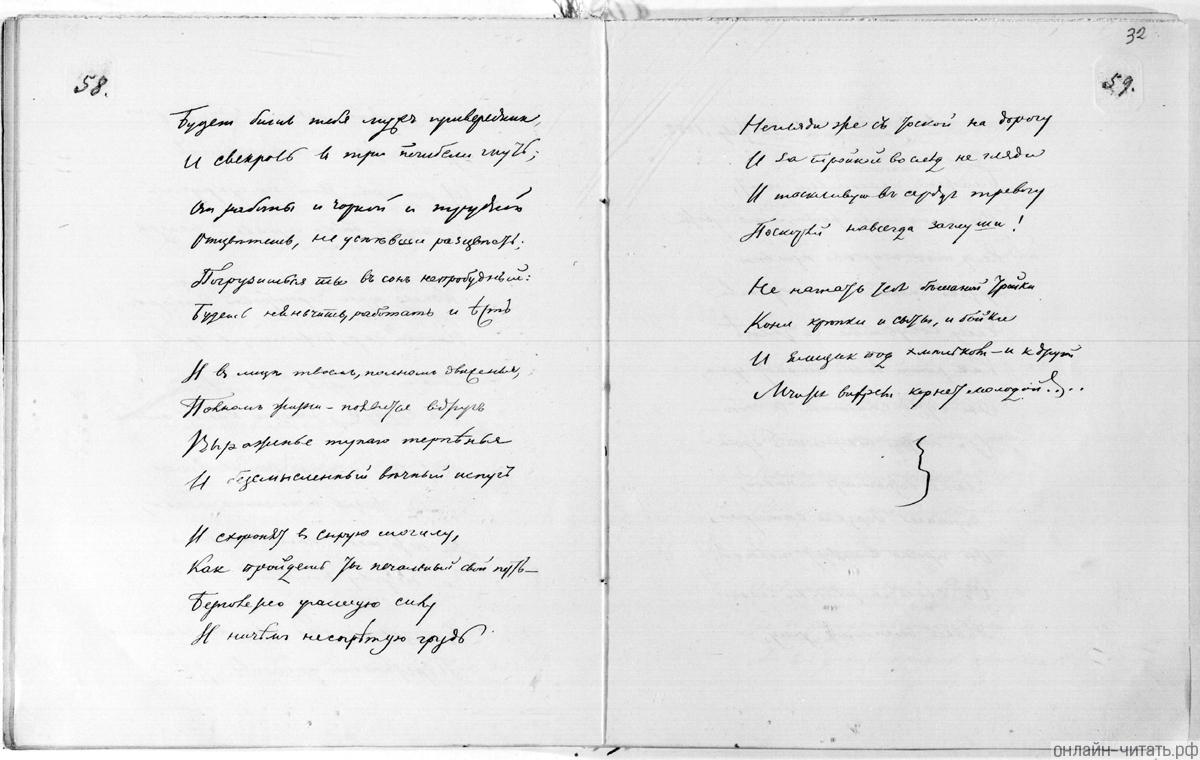 58.
Будетъ бить тебя мужъ привередникъ
И свекровь в три погибели гнуть;
Отъ работы и чорной и трудной
Отцвѣтешь, не успѣвши разцвѣсть,
Погрузишься ты въ сонъ непробудный:
Будешь няньчить, работать и ѣсть
И в лицѣ твоемъ, полномъ движенья,
Полномъ жизни – появится вдругъ
Выраженье тупаго терпѣнья
И безсмысленный вѣчный испугъ
И схоронятъ в сырую могилу,
Как пройдешь ты печальный свой путь –
Безполезно угасшую силу
И ничѣмъ не согрѣтую грудь.
32
59.
Не гляди же съ тоской на дорогу
И за тройкой вослед не гляди
И тоскливую въ сердце тревогу
Поскорѣй навсегда заглуши!
Не нагнать тебѣ бѣшеной тройки
Кони крѣпки и сыты, и бойки
И ямщик под хмѣльком – и к другой
Мчится вихрем корнетъ молодой....
онлайн-читать.рф